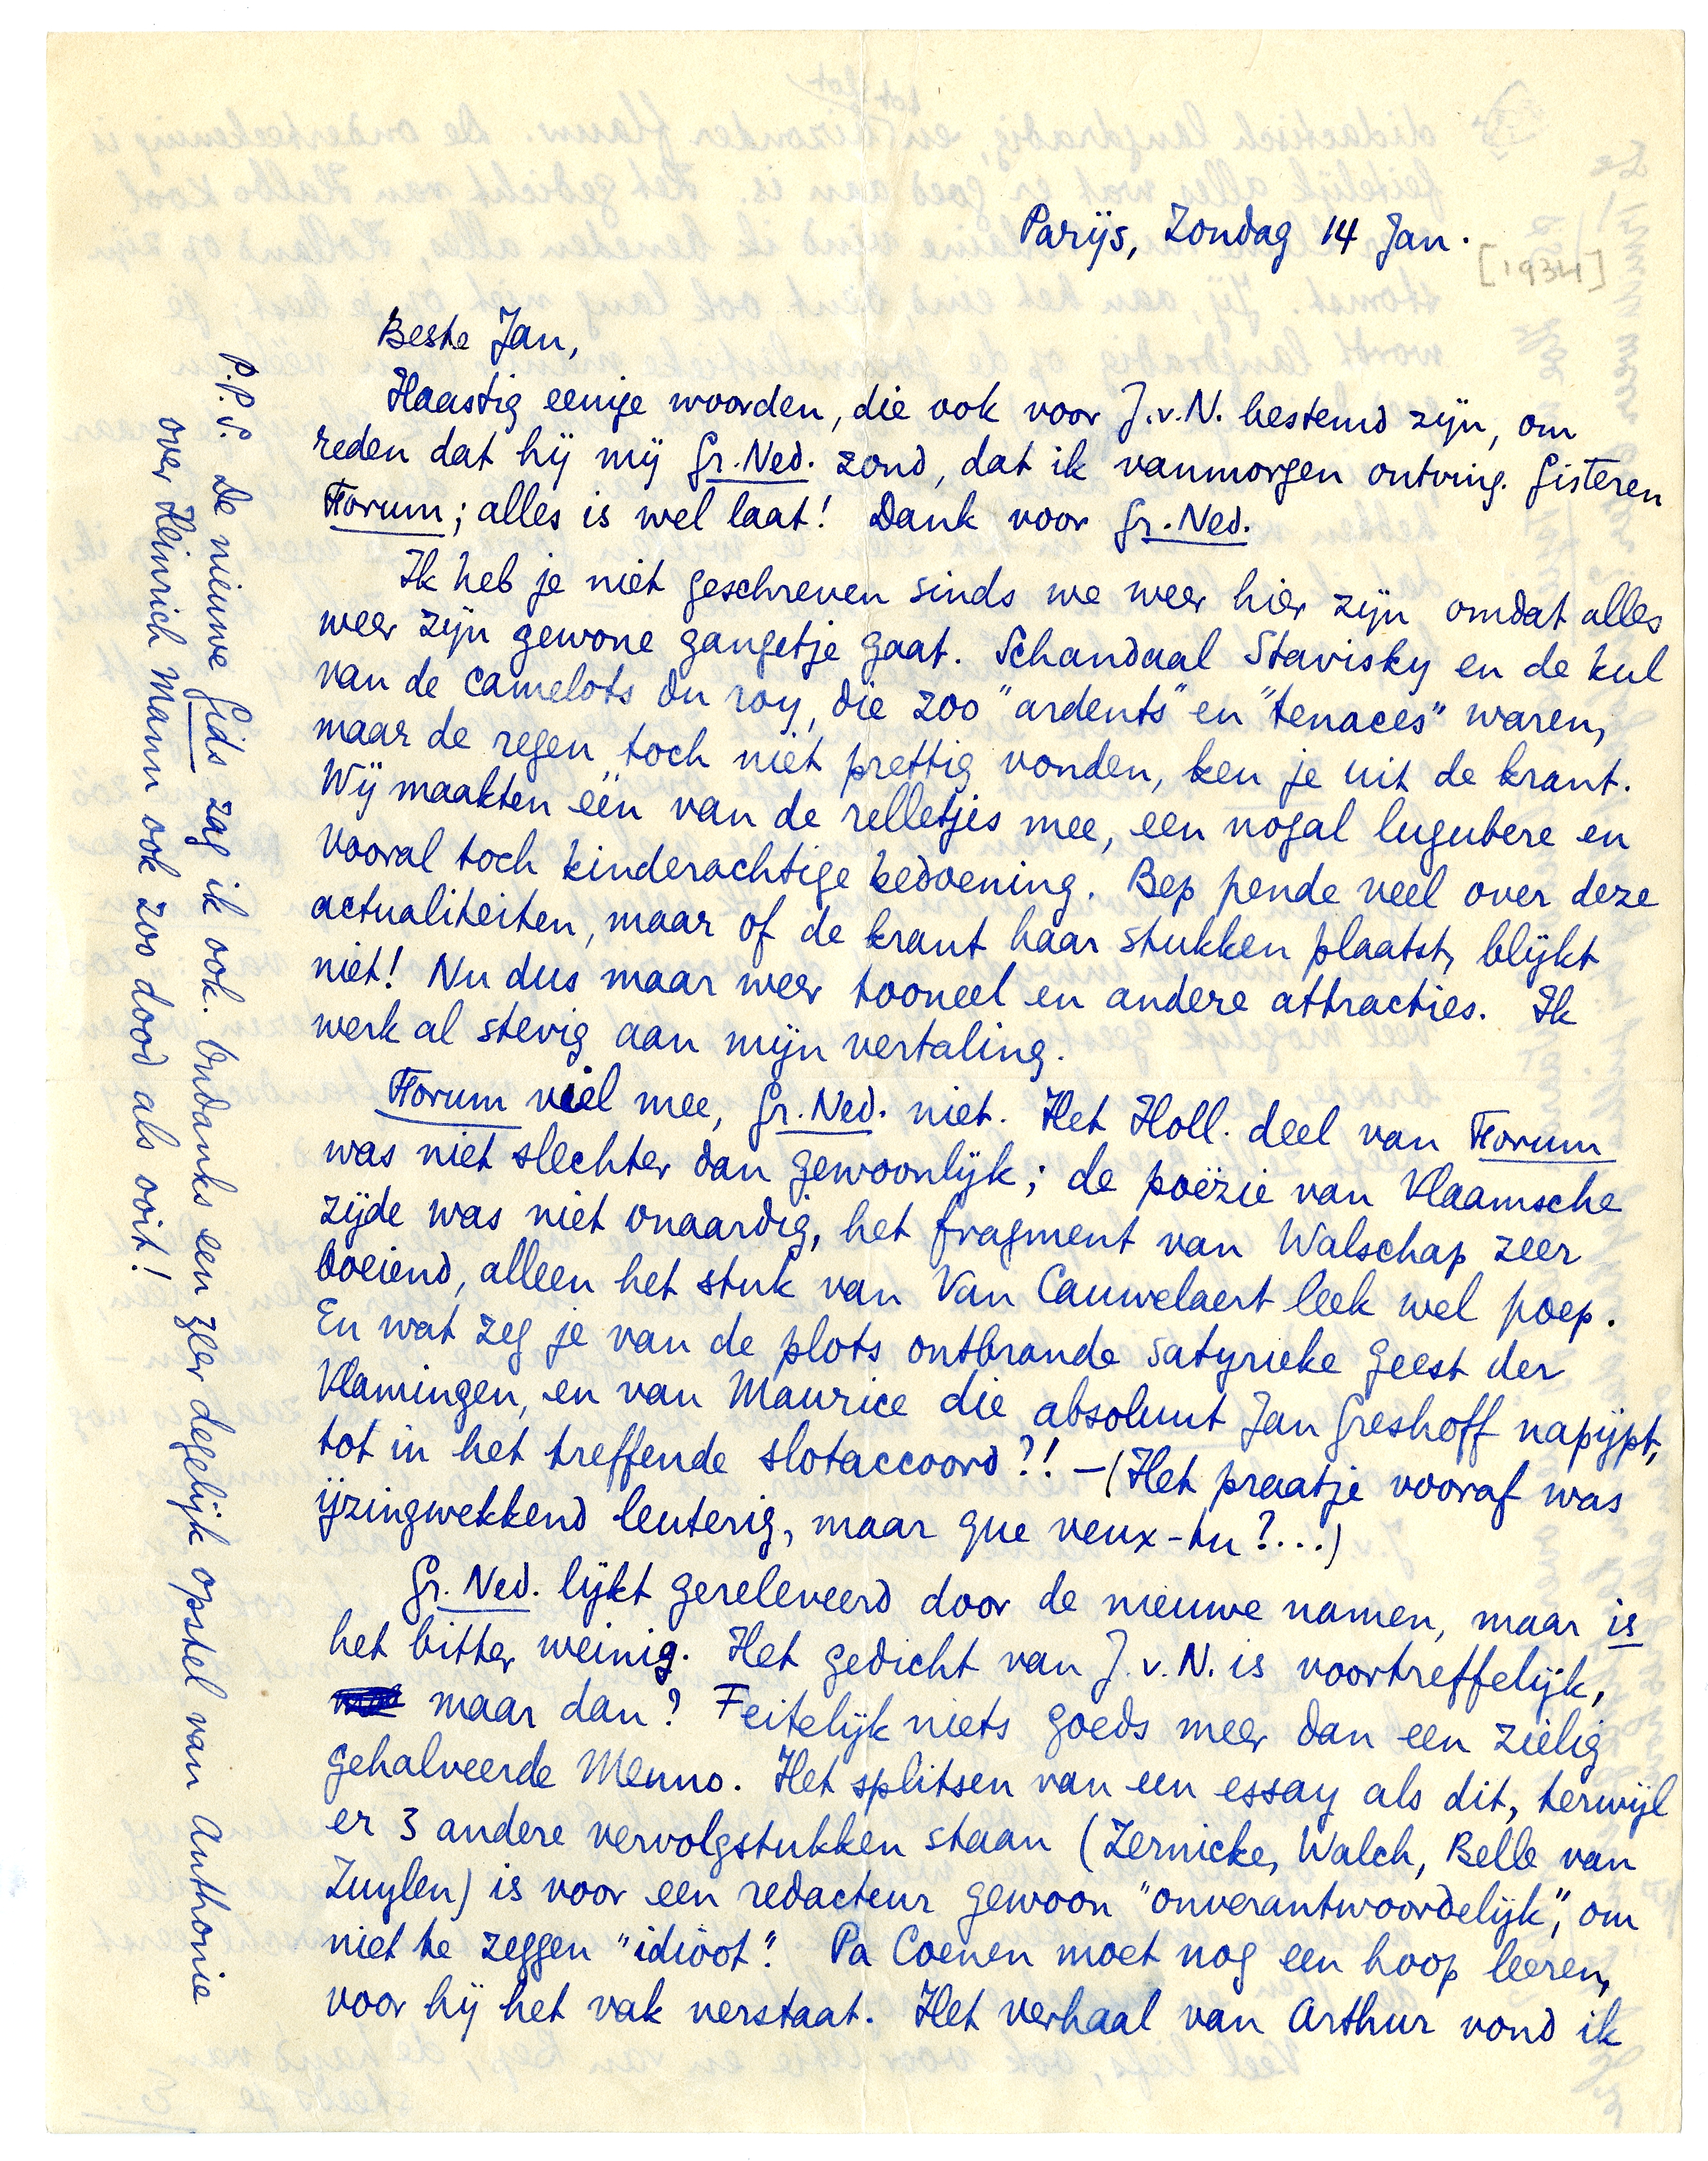 Parijs, Zondag 14 Jan.
[1934]
Beste Jan,
Haastig eenige woorden, die ook voor J.v.N. bestemd zijn, om
reden dat hij mij Gr.Ned. zond, dat ik vanmorgen ontving. Gisteren
Forum; alles is wel laat! Dank voor Gr.Ned.
Ik heb je niet geschreven sinds we weer hier zijn omdat alles
weer zijn gewone gangetje gaat. Schandaal Stavisky en de kul
van de camelots du roy, die zoo "ardents" en "tenaces" waren,
maar de regen toch niet prettig vonden, ken je uit de krant.
Wij maakten één van de relletjes mee, een nogal lugubere en
vooral toch kinderachtige bedoening. Bep pende veel over deze
actualiteiten, maar of de krant haar stukken plaatst, blijkt
niet! Nu dus maar weer tooneel en andere attracties. Ik
werk al stevig aan mijn vertaling.
Forum viel mee, Gr.Ned. niet. Het Holl. deel van Forum
was niet slechter dan gewoonlijk; de poëzie van Vlaamsche
zijde was niet onaardig, het fragment van Walschap zeer
boeiend, alleen het stuk van Van Cauwelaert leek wel poep.
En wat zeg je van de plots ontbrande satyrieke geest der
Vlamingen, en van Maurice die absoluut Jan Greshoff napijpt,
tot in het treffende slotaccoord?! —(Het praatje vooraf was
ijzingwekkend leuterig, maar que veux-tu?...)
Gr. Ned. lijkt gereleveerd door de nieuwe namen, maar is
het bitter weinig. Het gedicht van J.v.N. is voortreffelijk,
maar dan? Feitelijk niets goeds meer dan een zielig
gehalveerde Menno. Het splitsen van een essay als dit, terwijl
er 3 andere vervolgstukken staan (Zernicke, Walch, Belle van
Zuylen) is voor een redacteur gewoon "onverantwoordelijk", om
niet te zeggen "idioot". Pa Coenen moet nog een hoop leeren,
voor hij het vak verstaat. Het verhaal van Arthur vond ik
P.P.S. De nieuwe Gids zag ik ook. Ondanks een zeer degelijk opstel van Anthonie
over Heinrich Mann ook zoo dood als ooit!